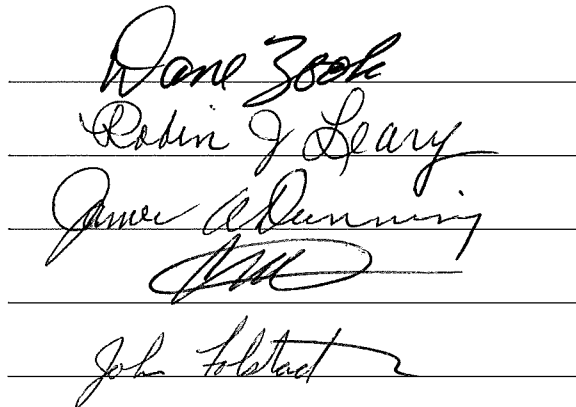 Dane Zook
Robin J Leary
James A Dunning
John Folstad